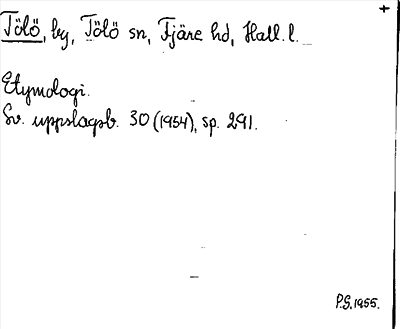 +
Tölö, by, Tölö sn, Fjäre hd, Hall. l.
Etymologi.
Sv. uppslagsb. 30 (1954), sp. 291.
P.G. 1955.